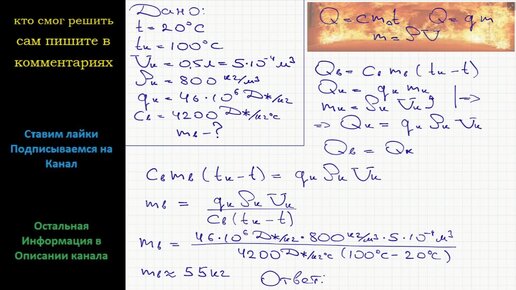 кто смог решить
сам пишите в
комментариях
Ставим лайки
Подписываемся на
Канал
Остальная
Информация в
Описании канала
Дано:
t = 20°C
tк = 100°C
Vк = 0,5л = 5·10⁻⁴ м³
ρк = 800 кг/м³
qк = 46·10⁶ Дж/кг
Cв = 4200 Дж/кг°C
mв - ?
Q = cm₀t Q = qm
m = ρV
Qв = Cв mв (tк - t)
Qк = qк mк
mк = ρк Vк } | =>
=> Qк = qк ρк Vк
Qв = Qк
Cв mв (tк - t) = qк ρк Vк
mв = qк ρк Vк / Cв (tк - t)
mв = 46·10⁶ Дж/кг · 800 кг/м³ · 5·10⁻⁴ м³ / 4200 Дж/кг°C (100°C - 20°C)
mв ≈ 55 кг Ответ: